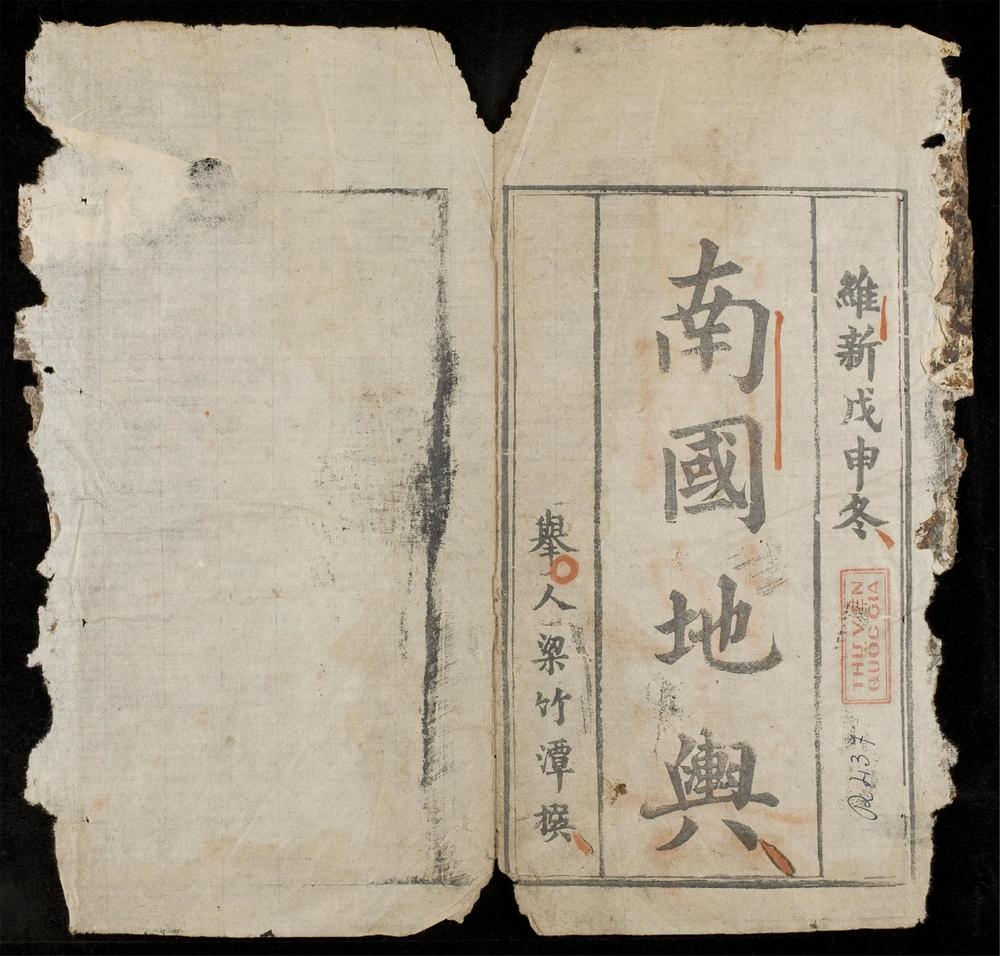 維新戊申冬
THƯ VIỆN
QUỐC GIA
南國地輿
舉人梁竹潭撰